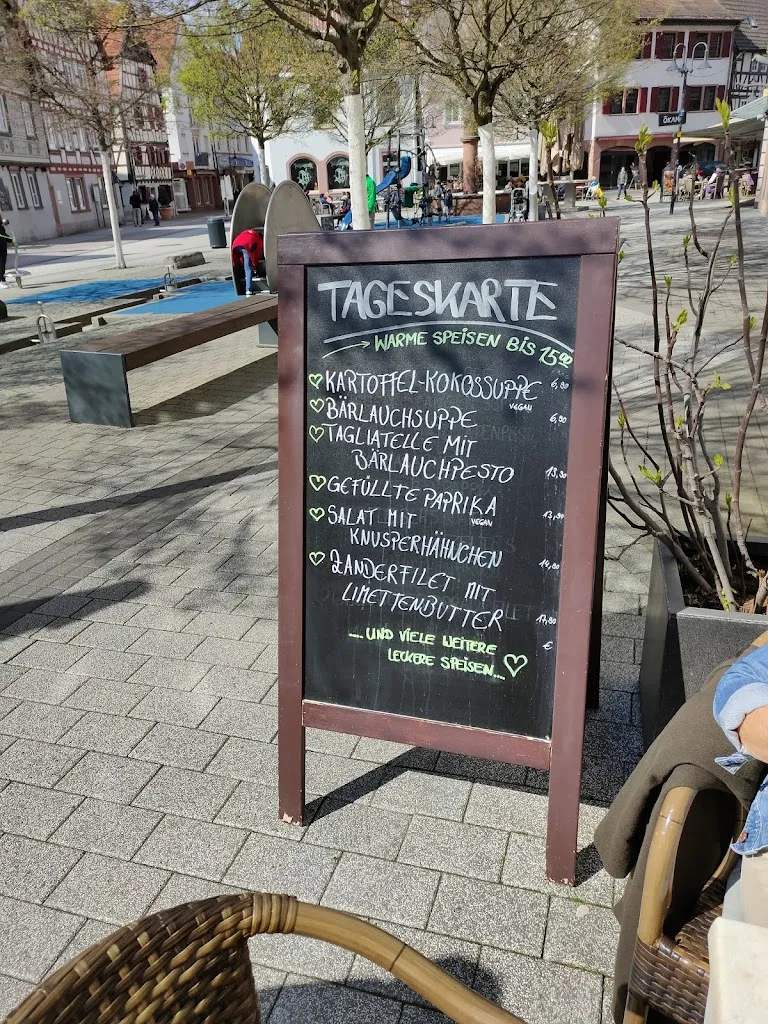 ÖKAN
TAGESKARTE
→ WARME SPEISEN BIS 15⁰⁰
KARTOFFEL-KOKOSSUPPE 6,90
VEGAN
BÄRLAUCHSUPPE 6,90
TAGLIATELLE MIT
BÄRLAUCHPESTO 13,90
GEFÜLLTE PAPRIKA 13,90
VEGAN
SALAT MIT
KNUSPERHÄHNCHEN 14,90
ZANDERFILET MIT
LIMETTENBUTTER 17,90
€
.... UND VIELE WEITERE
LECKERE SPEISEN....